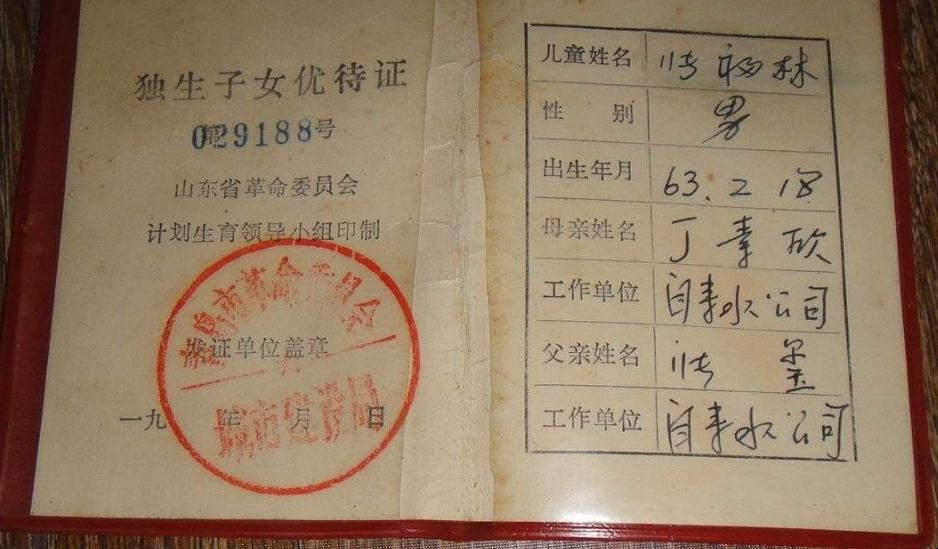 独生子女优待证
第029188号
山东省革命委员会
计划生育领导小组印制
市革命委员会
发证单位盖章
城市建设局
一九 年 月 日
儿童姓名 张 林
性 别 男
出生年月 63.2 18
母亲姓名 丁 欣
工作单位 自来水公司
父亲姓名 张
工作单位 自来水公司